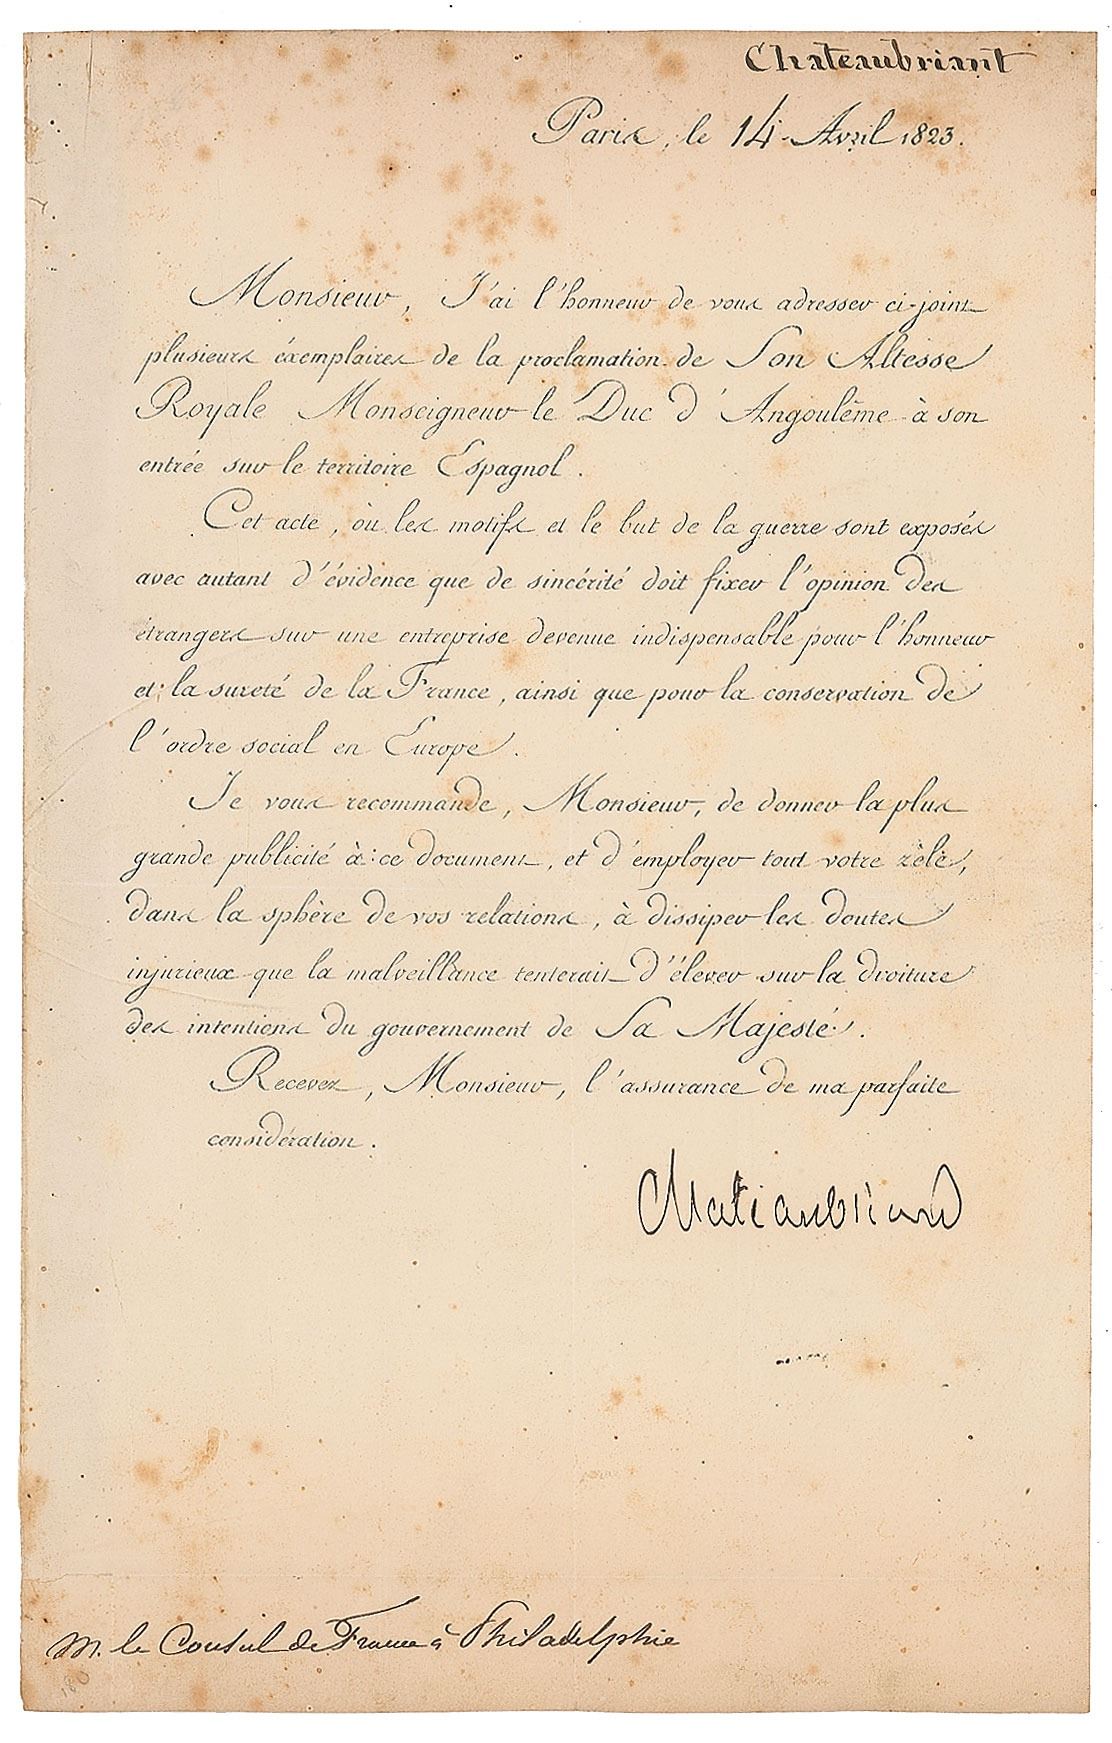 Chateaubriant
Paris, le 14 Avril 1823.
Monsieur, J'ai l'honneur de vous adresser ci-joint
plusieurs éxemplaires de la proclamation de Son Altesse
Royale Monseigneur le Duc d'Angoulême à son
entrée sur le territoire Espagnol.
Cet acte, où les motifs et le but de la guerre sont exposés
avec autant d'évidence que de sincérité doit fixer l'opinion des
étrangers sur une entreprise devenue indispensable pour l'honneur
et la sureté de la France, ainsi que pour la conservation de
l'ordre social en Europe.
Je vous recommande, Monsieur, de donner la plus
grande publicité à ce document, et d'employer tout votre zèle,
dans la sphère de vos relations, à dissiper les doutes
injurieux que la malveillance tenterait d'élever sur la droiture
des intentions du gouvernement de Sa Majesté.
Recevez, Monsieur, l'assurance de ma parfaite
considération.
Chateaubriand
M. le Consul de France à Philadelphie